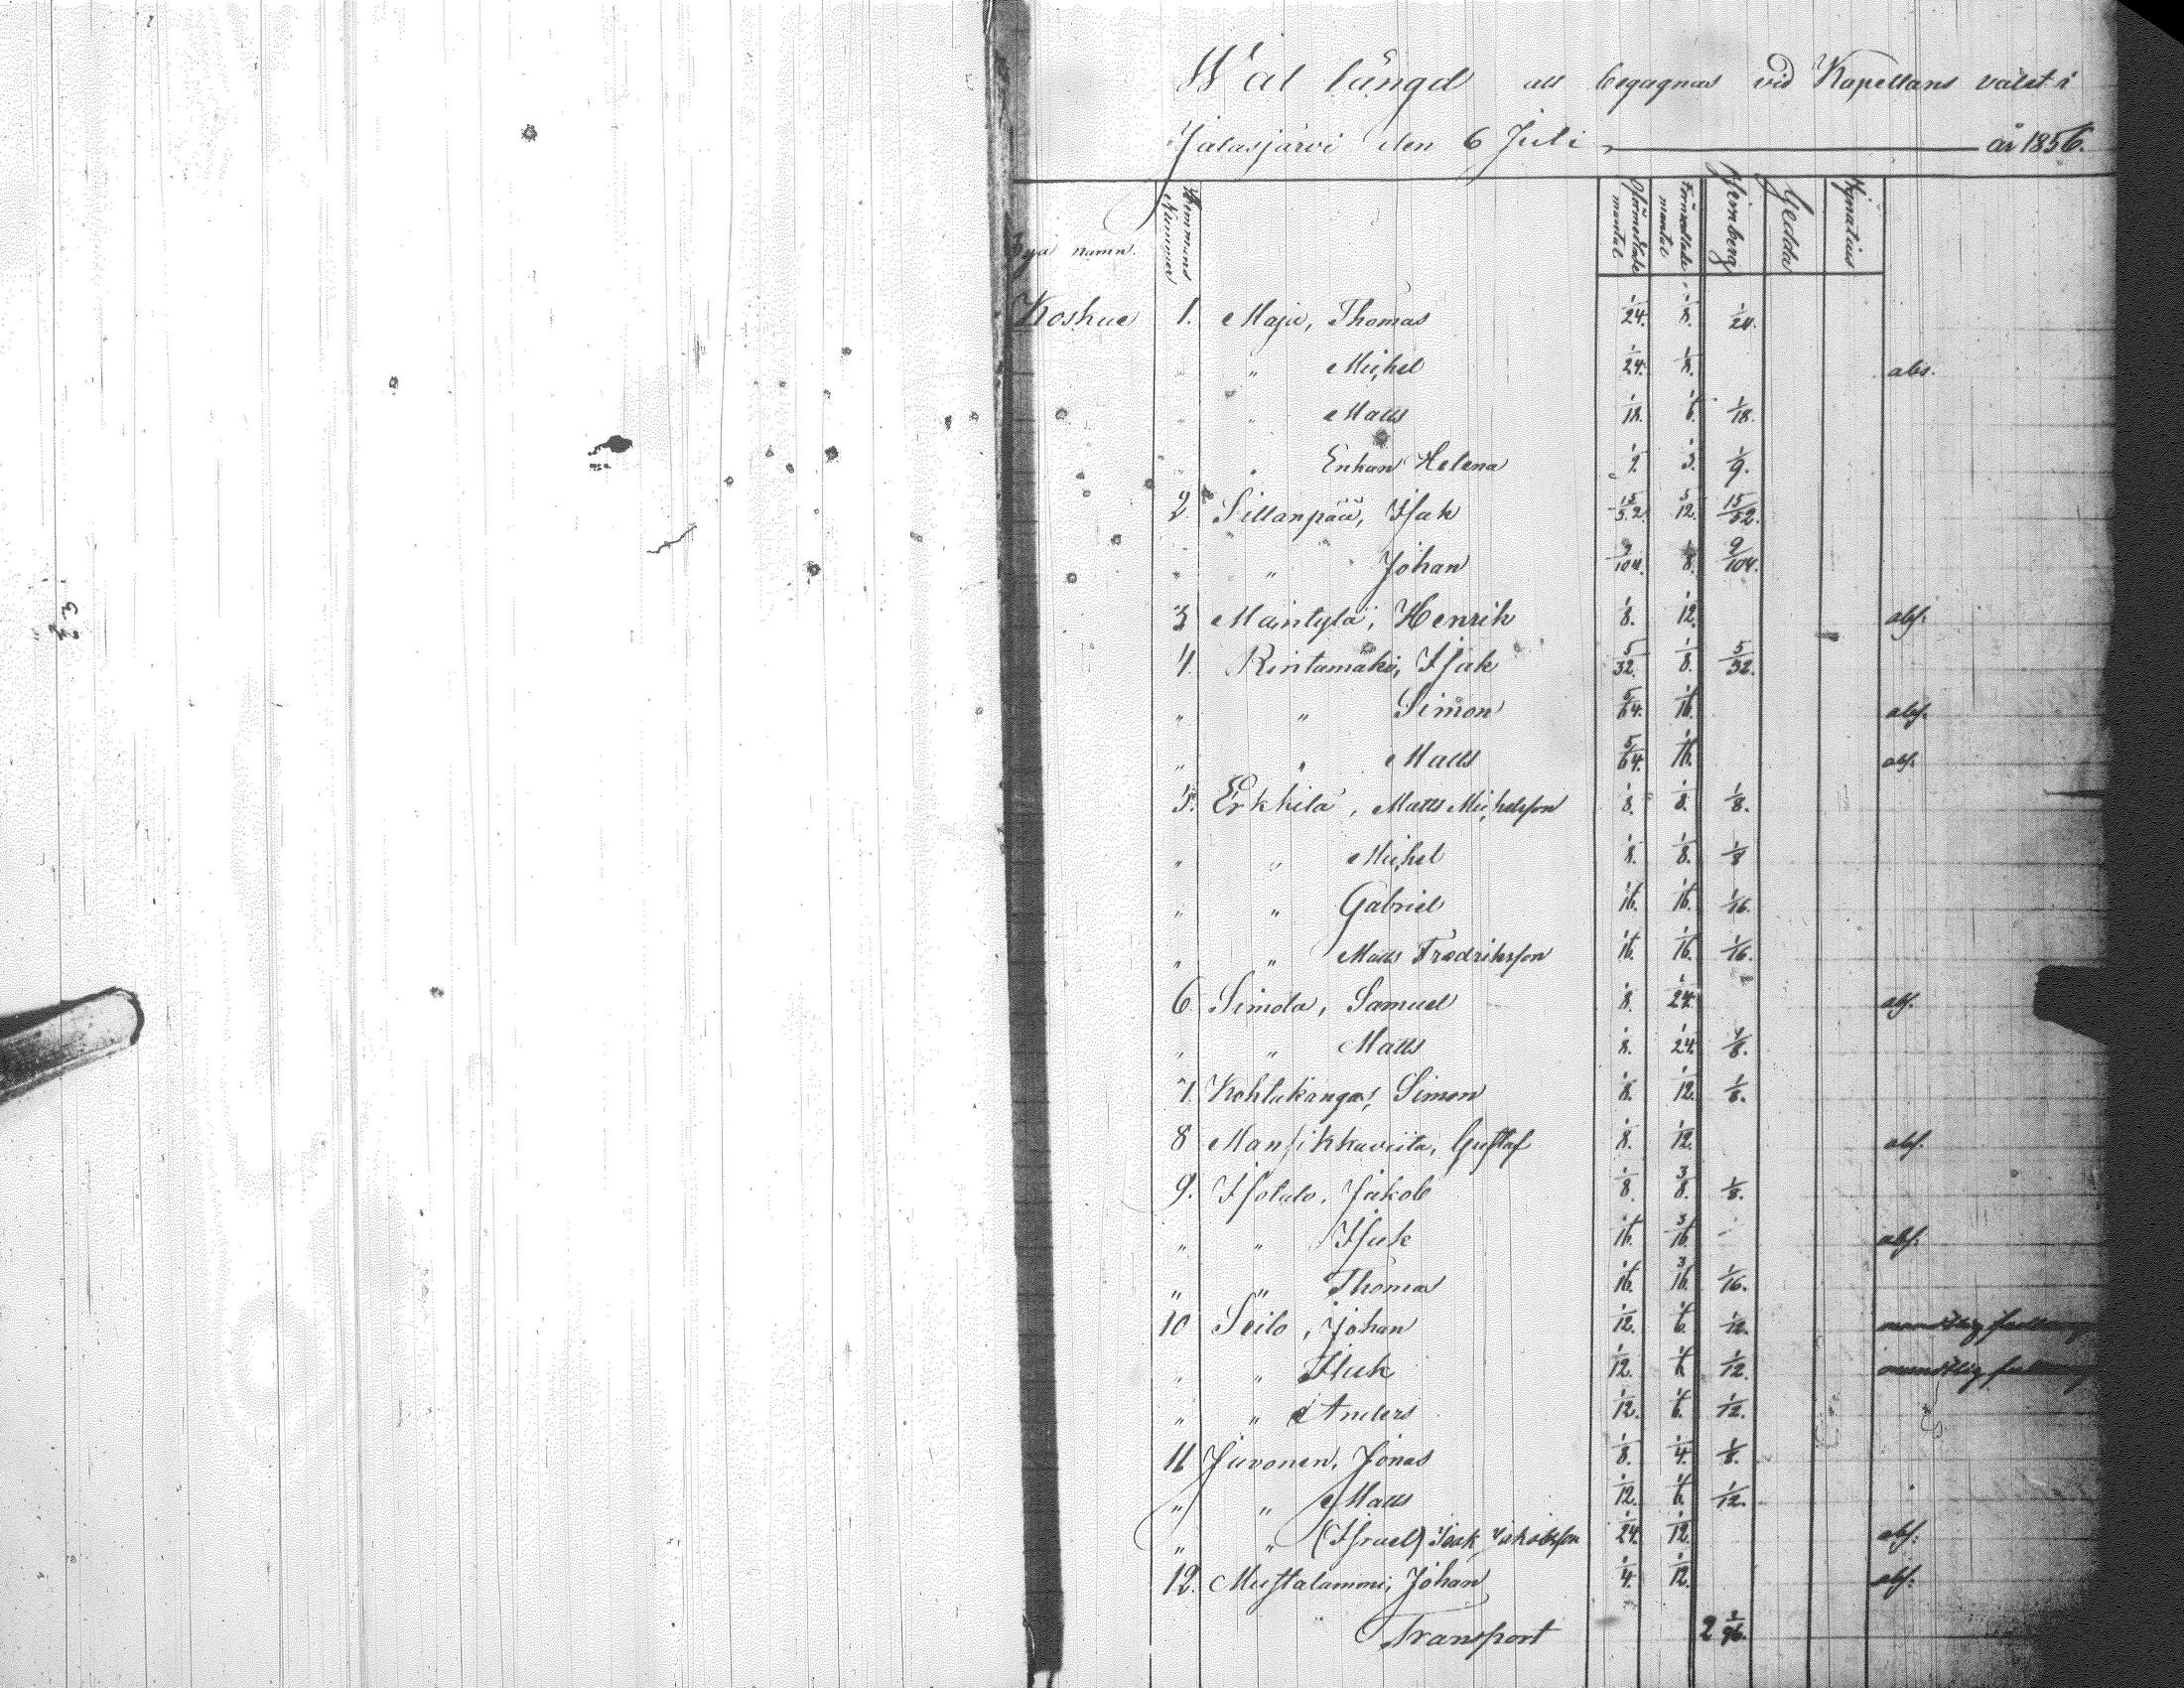 Wal längd att begagnas vid Kapellans valet i
Jalasjärvi den 6 Juli år 1856.
Bya namn. Hemmans Nummer Oförmedlade mantal Förmedlade mantal Heimberg Gedda Wegelius
Koskue 1. Maja, Thomas 1/24. 1/8. 1/24.
" " Michel 1/24. 1/8. abs.
" " Matts 1/18. 1/6. 1/18.
" " Enkan Helena 1/9. 1/3. 1/9.
2 Sillanpää, Isak 15/52. 5/12. 15/52.
" " Johan 9/104. 1/8. 9/104.
3 Mäntylä, Henrik 1/8. 1/12. abs.
4. Rintamäki, Isak 5/32. 1/8. 5/32.
" " Simon 5/64. 1/16. abs.
" " Matts 5/64. 1/16. abs.
5. Erkkilä, Matts Michelsson 1/8. 1/8. 1/8.
" " Michel 1/8. 1/8. 1/8
" " Gabriel 1/16. 1/16. 1/16.
" " Matts Fredriksson 1/16. 1/16. 1/16.
6 Simola, Samuel 1/8. 1/24. abs.
" " Matts 1/8. 1/24. 1/8.
7. Kohtakangas, Simon 1/8. 1/12. 1/8.
8 Mansikkaviita, Gustaf 1/8. 1/12. abs.
9. Isotalo, Jakob 1/8. 3/8. 1/8.
" " Isak 1/16. 3/16. abs.
" " Thomas 1/16. 3/16. 1/16.
10 Seilo, Johan 1/12. 1/6. 1/12.
" " Isak 1/12. 1/6. 1/12.
" " Anders 1/12. 1/6. 1/12.
11 Juvonen, Jonas 1/8. 1/4. 1/8.
" " Matts 1/12. 1/6. 1/12.
" " (Israel) Isak Jakobsson 1/24. 1/12. abs.
12. Mustalammi, Johan 1/4. 1/12. abs.
Transport